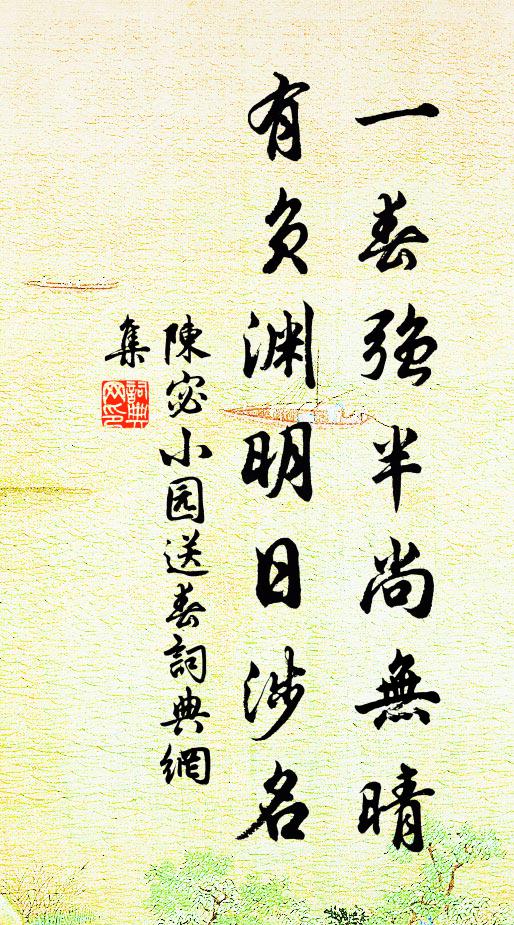 一春強半尚無晴
有負淵明日涉名
陳宓小园送春詞典網
集
詞典網印